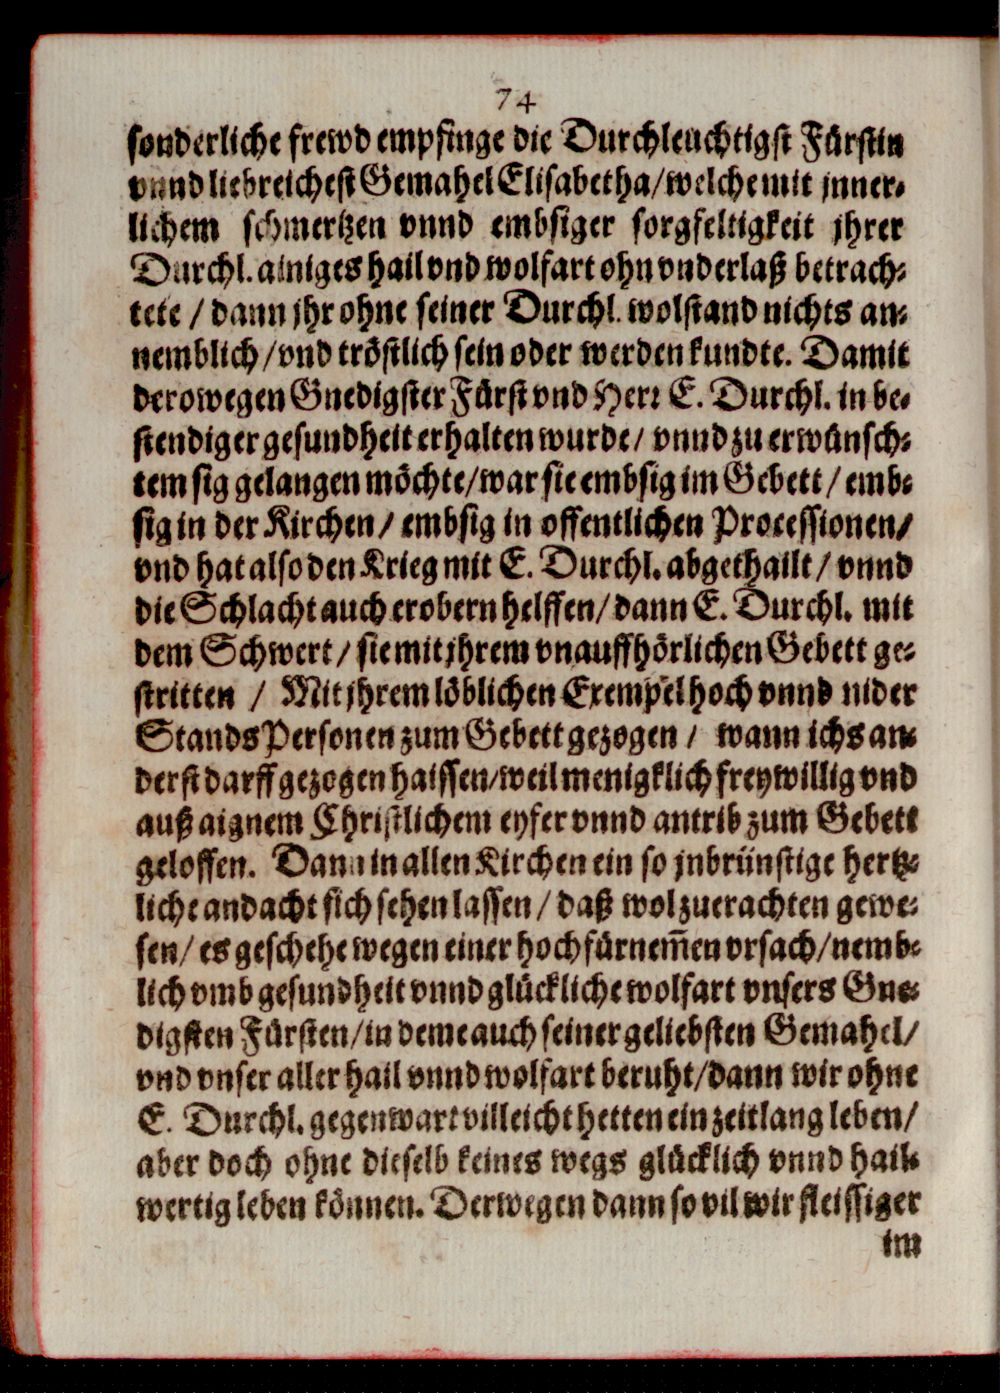 74
sonderliche frewd empfinge die Durchleuchtigst Fürstin
vnnd liebreichest Gemahel Elisabetha/welche mit jnner-
lichem schmertzen vnnd embsiger sorgfeltigkeit jhrer
Durchl. ainiges hail vnd wolfart ohn vnderlaß betrach-
tete / dann jhr ohne seiner Durchl. wolstand nichts an-
nemblich/vnd tröstlich sein oder werden kundte. Damit
derowegen Gnedigster Fürst vnd Herr E. Durchl. in be-
stendiger gesundheit erhalten wurde/ vnnd zu erwünsch-
tem sig gelangen möchte/war sie embsig im Gebett / emb-
sig in der Kirchen/ embsig in offentlichen Processionen/
vnd hat also den Krieg mit E. Durchl. abgethailt/ vnnd
die Schlacht auch erobern helffen/dann E. Durchl. mit
dem Schwert/ sie mit jhrem vnauffhörlichen Gebett ge-
stritten / Mit jhrem löblichen Exempel hoch vnnd nider
Stands Personen zum Gebett gezogen / wann ichs an-
derst darff gezogen haissen/weil menigklich freywillig vnd
auß aignem Christlichem eyfer vnnd antrib zum Gebett
geloffen. Dann in allen Kirchen ein so jnbrünstige hertz-
liche andacht sich sehen lassen/ daß wol zuerachten gewe-
sen/ es geschehe wegen einer hochfürnem̃en vrsach/nemb-
lich vmb gesundheit vnnd glückliche wolfart vnsers Gne-
digsten Fürsten/in deme auch seiner geliebsten Gemahel/
vnd vnser aller hail vnnd wolfart beruht/dann wir ohne
E. Durchl. gegenwart villeicht hetten ein zeitlang leben/
aber doch ohne dieselb keines wegs glücklich vnnd hail-
wertig leben können. Derwegen dann so vil wir fleissiger
im